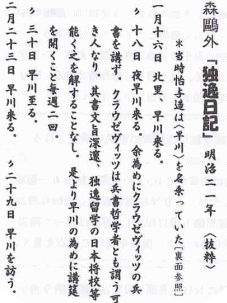 森鷗外『独逸日記』明治二一年〈抜粋〉
＊当時怡与造は〈早川〉と名乗っていた〔裏面参照〕
一月十六日 北里、早川来る。
〃 十八日 夜早川来る。余為めにクラウゼヴィッツの兵
書を講ず。クラウゼヴィッツは兵書哲学者とも謂ふ可
き人なり。其書文旨深邃、独逸留学の日本将校等
能く之を解することなし。是より早川の為めに講筵
を開くこと毎週二回。
〃 三十日 早川至る。
二月二十三日 早川来る。 〃 二十九日 早川を訪う。